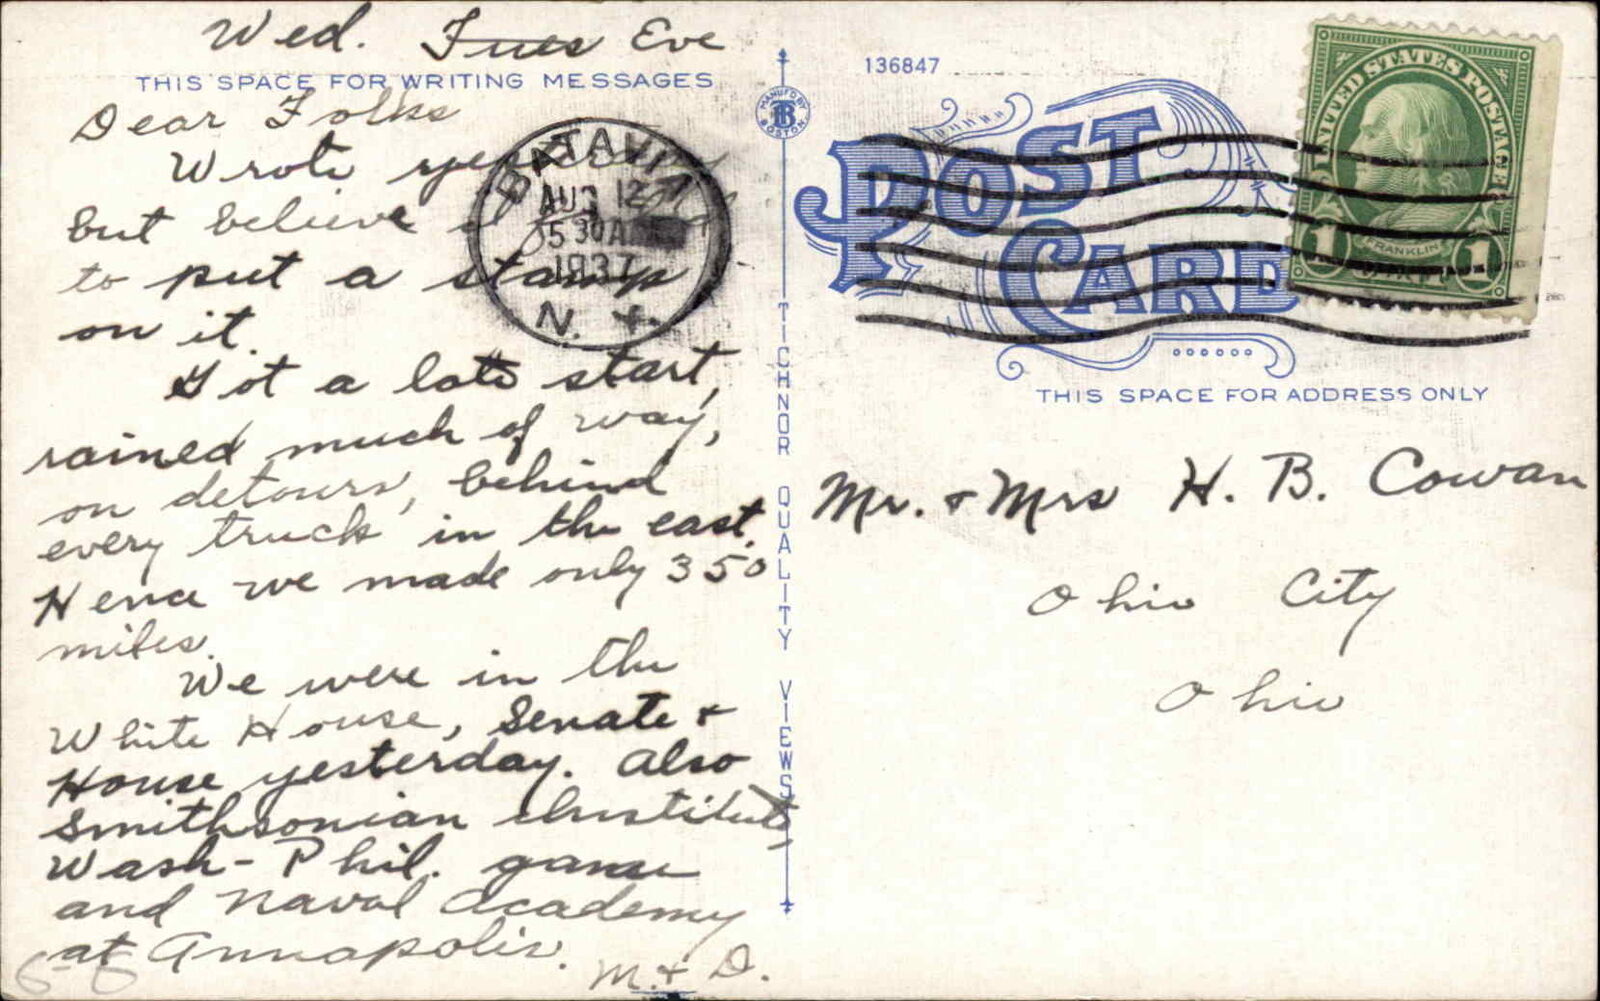 Wed. Tues Eve
THIS SPACE FOR WRITING MESSAGES
Dear Folks
Wrote yesterday
but believe I
to put a stamp
on it.
Got a late start,
rained much of way,
on detours, behind
every truck in the east.
Hence we made only 350
miles.
We were in the
White House, Senate +
House yesterday. Also
Smithsonian Institute,
Wash-Phil. game
and Naval Academy
at Annapolis.
M. + D.
BATAVIA
AUG 12
5 30 AM
1937
N. Y.
MANUF'D BY
TB
BOSTON
TICHNOR QUALITY VIEWS
136847
POST CARD
UNITED STATES POSTAGE
FRANKLIN
1 CENT 1
THIS SPACE FOR ADDRESS ONLY
Mr. + Mrs H. B. Cowan
Ohio City
Ohio